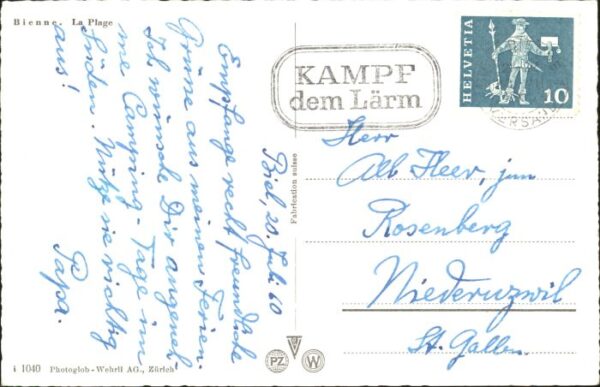 Bienne. La Plage
Biel, 20. Juli 60
Empfange recht freundliche
Grüsse aus meinen Ferien.
Ich wünsche Dir angeneh
me Camping-Tage im
Süden. Nütze sie richtig
aus!
Papa.
i 1040 Photoglob-Wehrli AG., Zürich
Fabrication suisse
PZ
W
KAMPF
dem Lärm
HELVETIA
10
Herr
Alb Heer, jun
Rosenberg
Niederuzwil
St. Gallen.